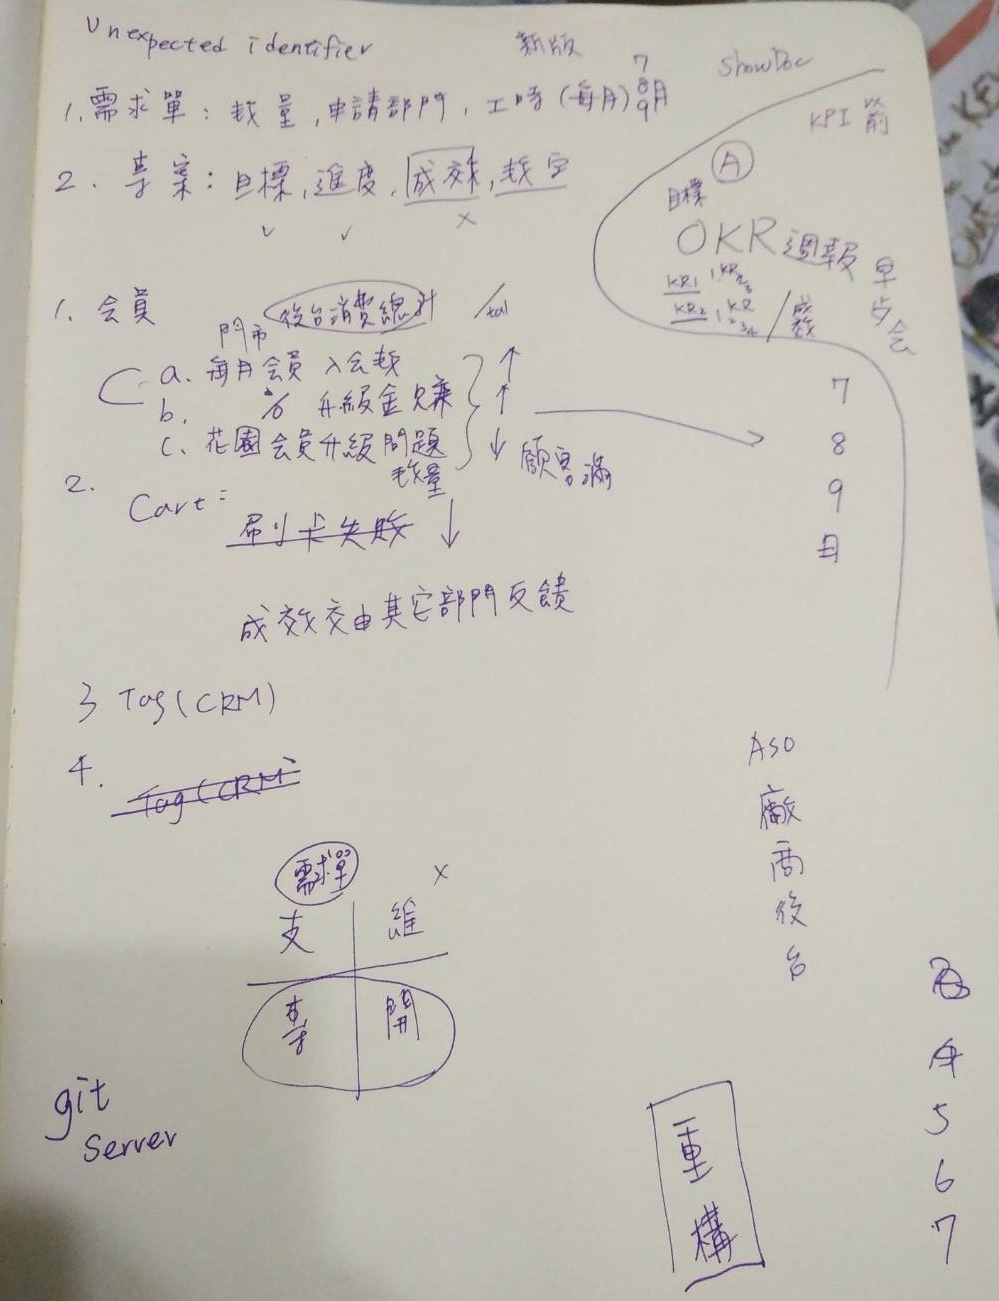 Unexpected identifier
新版
ShowDoc
1. 需求單：數量, 申請部門, 工時 (每月) 7 8 9月
KPI 以前
2. 專案：目標, 進度, 成效, 數字
A
目標
OKR 週報
早点会
KR1
KR2
/成效
1. 会員
後台消費總計
/total
門市
a. 每月会員 入会數
b. % 升級金
c. 花園会員升級問題
數量
顧客滿
7
8
9
月
2. Cart：
刷卡失敗
成效交由其它部門反饋
3 Tag (CRM)
4. Tag (CRM)
ASO
廠商後台
需求單
支 維
專 開
git
Server
重構
5
6
7